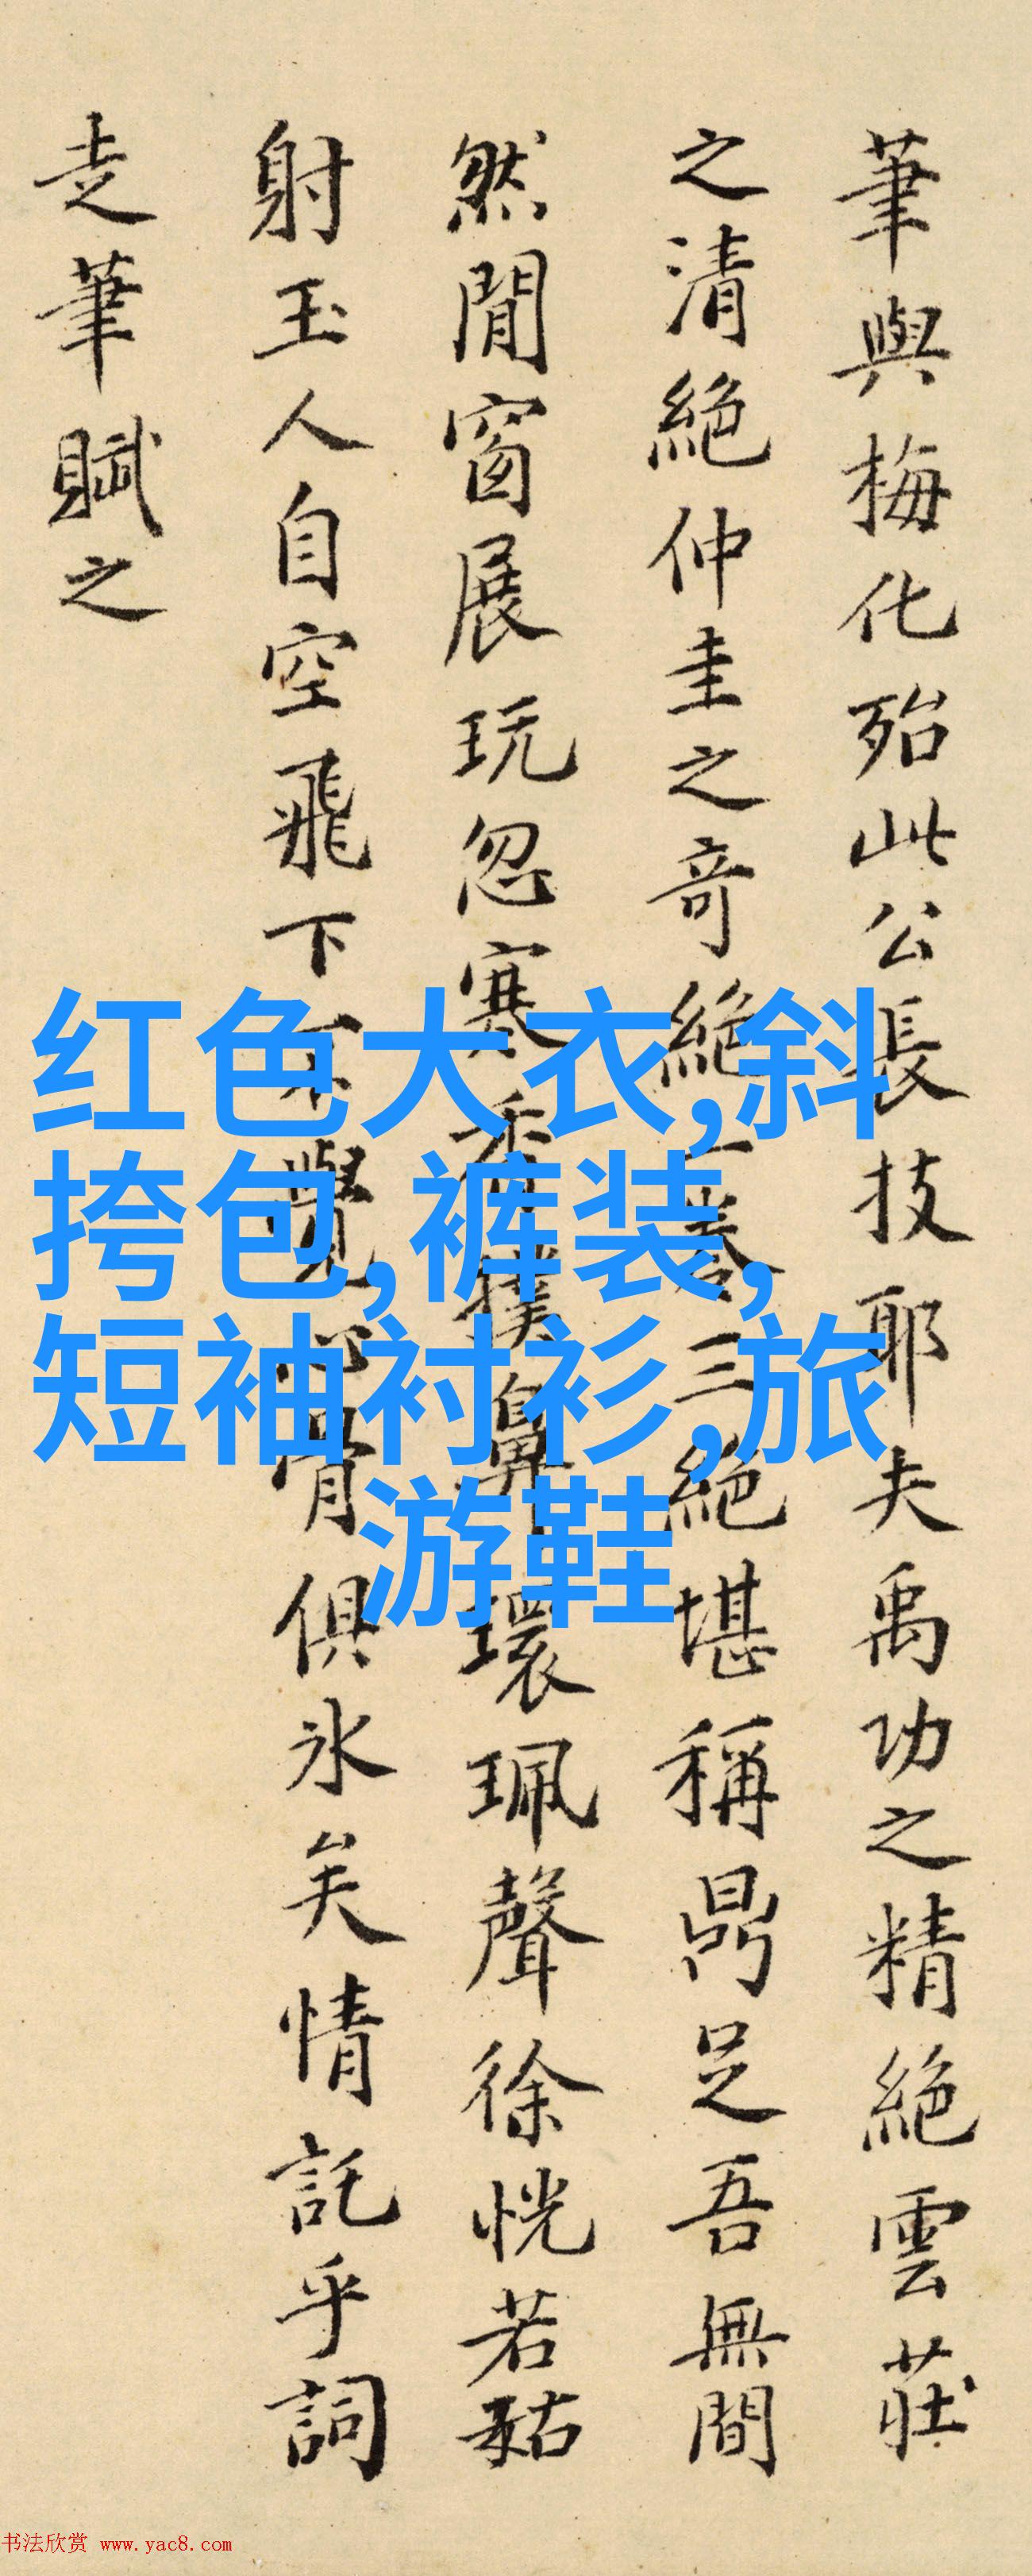 筆與梅化殆此公長技耶夫禹功之精絕雲莊
之清絕仲圭之奇絕一卷三絕堪稱鼎足吾無間
然閒窗展玩忽寒香撲鼻環珮聲徐恍若藐
射玉人自空飛下不覺心骨俱冰矣情託乎詞
走筆賦之
红色大衣,斜
挎包,裤装,
短袖衬衫,旅
游鞋
书法欣赏 www.yac8.com